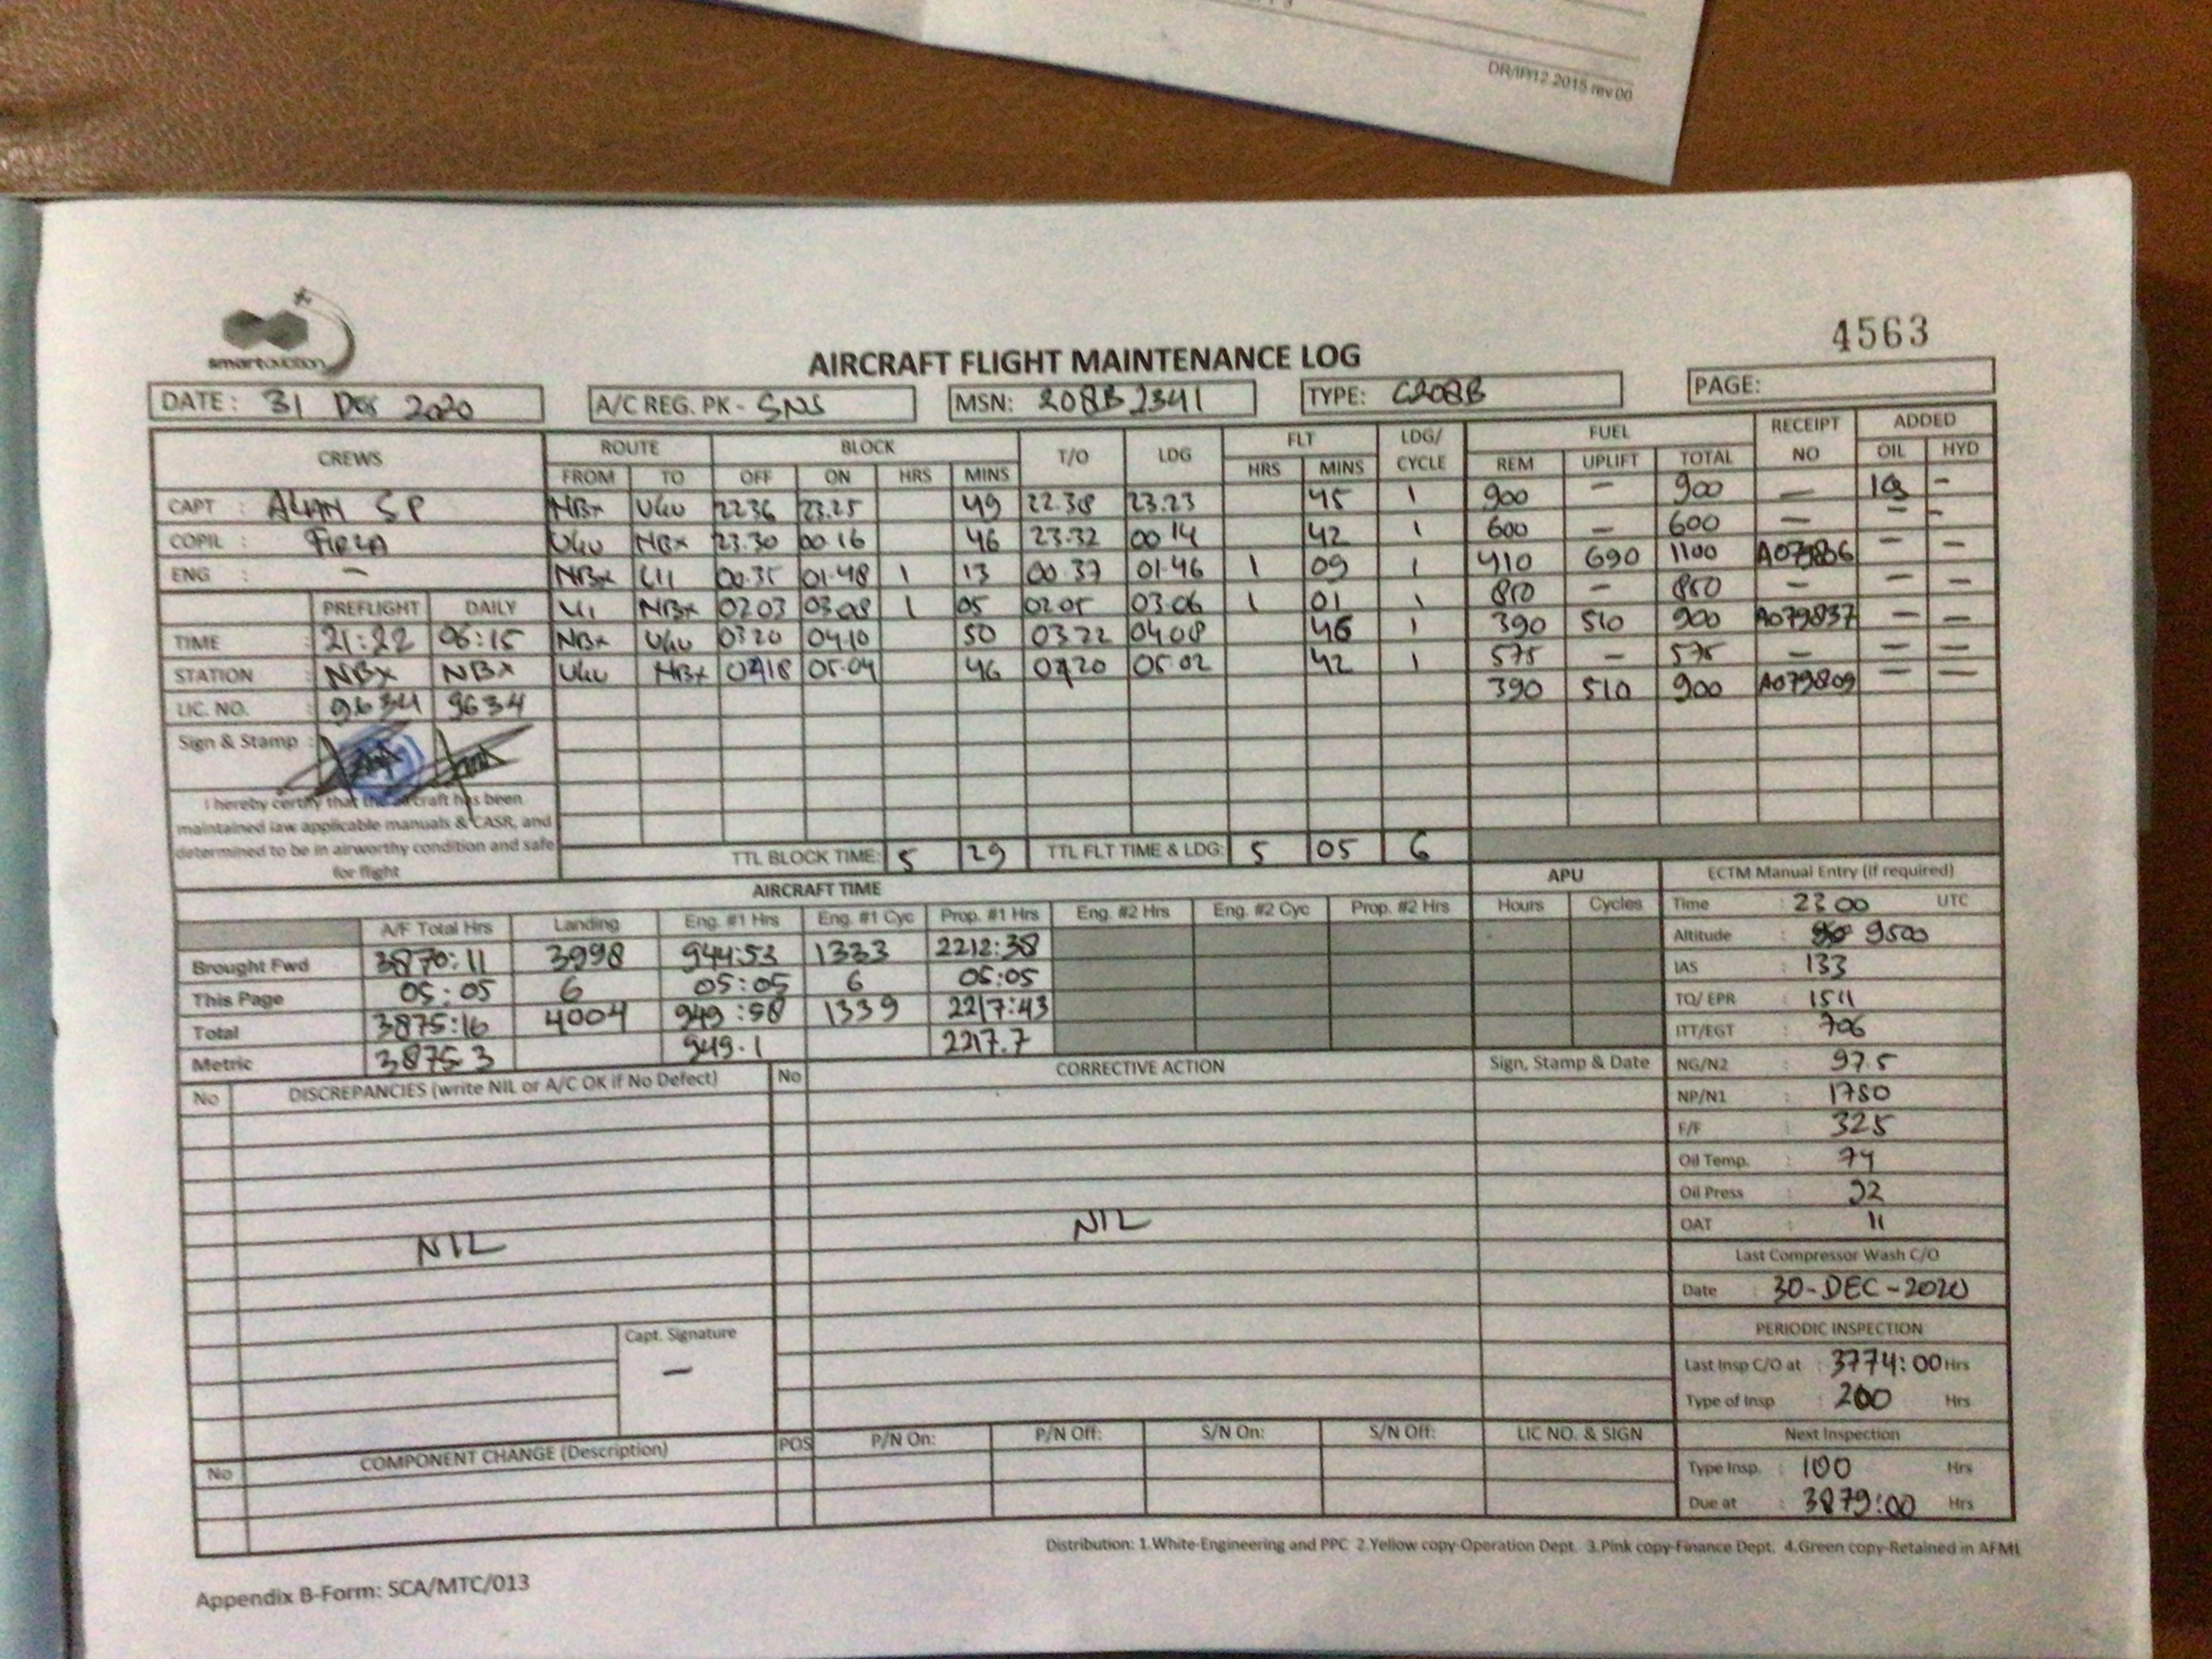 DR/IP/12.2015 rev 00
smart aviation
4563
AIRCRAFT FLIGHT MAINTENANCE LOG
DATE: 31 Des 2020 A/C REG. PK - SNS MSN: 208B 2341 TYPE: C208B PAGE:
CREWS ROUTE BLOCK T/O LDG FLT LDG/ CYCLE FUEL RECEIPT NO ADDED
FROM TO OFF ON HRS MINS HRS MINS REM UPLIFT TOTAL OIL HYD
CAPT : ALAN SP NBX UGU 22 36 23.25 49 22.38 23.23 45 1 900 - 900 - -
COPIL : UGU NBX 23.30 00.16 46 23.32 00 14 42 1 600 - 600 - - -
ENG : - NBX 00.35 01.48 1 13 00.37 01.46 1 09 1 410 690 1100 A079806 - -
PREFLIGHT DAILY NBX 02 03 03.08 1 05 02 05 03.06 1 01 1 - - - -
TIME : 21:22 06:15 NBX UGU 03 20 04.10 50 03.22 04 08 46 1 390 510 900 A079837 - -
STATION : NBX NBX UGU NBX 04 18 05.04 46 04 20 05.02 42 1 575 - 575 - - -
LIC. NO. : 9634 9634 390 510 900 A079809 - -
Sign & Stamp :
I hereby certify that the aircraft has been
maintained iaw applicable manuals & CASR, and
determined to be in airworthy condition and safe
for flight
TTL BLOCK TIME: 5 29 TTL FLT TIME & LDG: 5 05 6
AIRCRAFT TIME APU ECTM Manual Entry (if required)
A/F Total Hrs Landing Eng. #1 Hrs Eng. #1 Cyc Prop. #1 Hrs Eng. #2 Hrs Eng. #2 Cyc Prop. #2 Hrs Hours Cycles Time : 23 00 UTC
Brought Fwd 3870:11 3998 944:53 1333 2212:38 Altitude : 9500
This Page 05:05 6 05:05 6 05:05 IAS : 133
Total 3875:16 4004 949:58 1339 2217:43 TQ/ EPR : 1511
Metric 3875.3 949.1 2217.7 ITT/EGT : 706
No DISCREPANCIES (write NIL or A/C OK if No Defect) No CORRECTIVE ACTION Sign, Stamp & Date NG/N2 : 97.5
NP/N1 : 1750
F/F : 325
Oil Temp. : 74
Oil Press : 92
OAT : 11
NIL NIL
Last Compressor Wash C/O
Date : 30-DEC-2020
Capt. Signature
-
PERIODIC INSPECTION
Last Insp C/O at : 3774:00 Hrs
Type of Insp : 200 Hrs
No COMPONENT CHANGE (Description) POS P/N On: P/N Off: S/N On: S/N Off: LIC NO. & SIGN Next Inspection
Type Insp. : 100 Hrs
Due at : 3879:00 Hrs
Distribution: 1.White-Engineering and PPC 2.Yellow copy-Operation Dept. 3.Pink copy-Finance Dept. 4.Green copy-Retained in AFML
Appendix B-Form: SCA/MTC/013